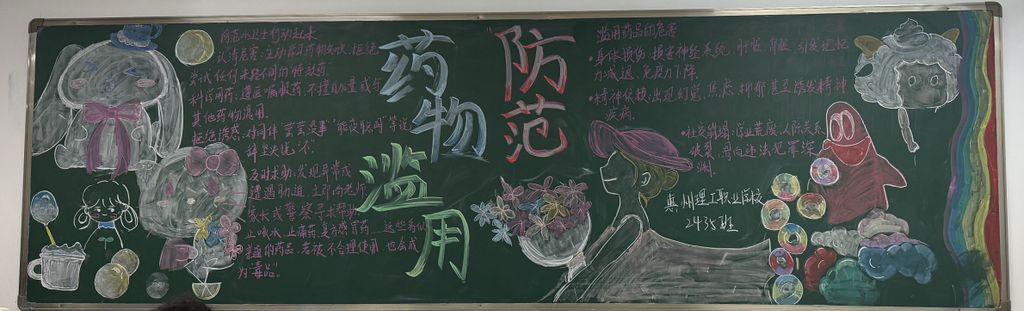 防范
药物
滥用
认清危害：主动学习药物知识，拒绝
尝试任何来路不明的特效药。
科学用药：遵医嘱服药，不擅自加量或与
其他药物混用。
拒绝诱惑：对同伴“尝尝没事”“能放松”等说
辞坚决说“不”
及时求助：发现异常或
遭遇胁迫，立即向老师
家长或警察寻求帮助
止咳水、止痛药、复方感冒药……这些看似
普通的药品，若被不合理使用，也会成
为“毒品”。
滥用药品的危害
·身体损伤：损害神经系统、肝脏、肾脏，引发记忆
力减退、免疫力下降。
·精神依赖：出现幻觉、焦虑、抑郁甚至诱发精神
疾病。
·社交崩塌：学业荒废、人际关系
破裂，易向违法犯罪深
渊。
惠州理工职业学校
2435班